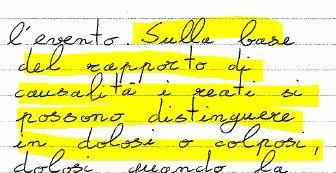 l'evento. Sulla base
del rapporto di
causalità i reati si
possono distinguere
in dolosi o colposi,
dolosi quando la